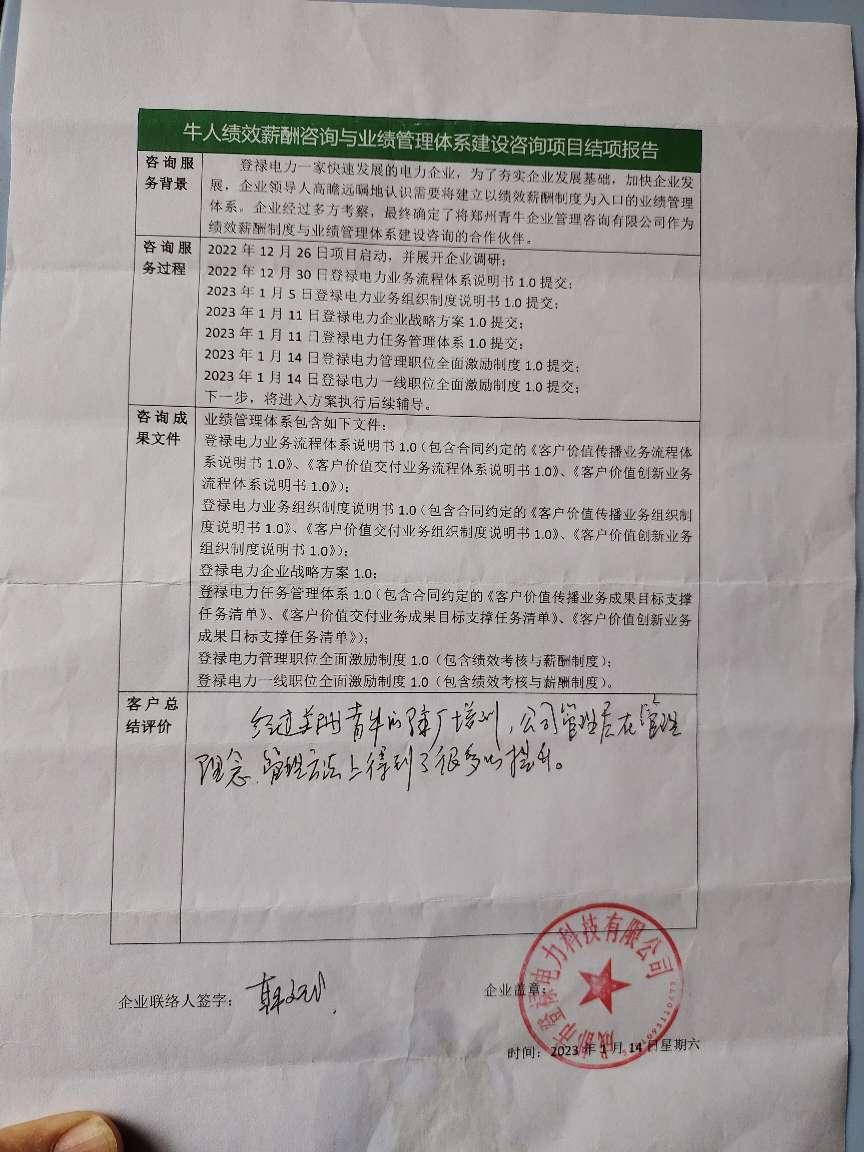 牛人绩效薪酬咨询与业绩管理体系建设咨询项目结项报告
咨询服
务背景
登禄电力一家快速发展的电力企业，为了夯实企业发展基础，加快企业发
展，企业领导人高瞻远瞩地认识需要将建立以绩效薪酬制度为入口的业绩管理
体系。企业经过多方考察，最终确定了将郑州青牛企业管理咨询有限公司作为
绩效薪酬制度与业绩管理体系建设咨询的合作伙伴。
咨询服
务过程
2022 年 12 月 26 日项目启动，并展开企业调研；
2022 年 12 月 30 日登禄电力业务流程体系说明书 1.0 提交；
2023 年 1 月 5 日登禄电力业务组织制度说明书 1.0 提交；
2023 年 1 月 11 日登禄电力企业战略方案 1.0 提交；
2023 年 1 月 11 日登禄电力任务管理体系 1.0 提交；
2023 年 1 月 14 日登禄电力管理职位全面激励制度 1.0 提交；
2023 年 1 月 14 日登禄电力一线职位全面激励制度 1.0 提交；
下一步，将进入方案执行后续辅导。
咨询成
果文件
业绩管理体系包含如下文件：
登禄电力业务流程体系说明书 1.0（包含合同约定的《客户价值传播业务流程体
系说明书 1.0》、《客户价值交付业务流程体系说明书 1.0》、《客户价值创新业务
流程体系说明书 1.0》）；
登禄电力业务组织制度说明书 1.0（包含合同约定的《客户价值传播业务组织制
度说明书 1.0》、《客户价值交付业务组织制度说明书 1.0》、《客户价值创新业务
组织制度说明书 1.0》）；
登禄电力企业战略方案 1.0；
登禄电力任务管理体系 1.0（包含合同约定的《客户价值传播业务成果目标支撑
任务清单》、《客户价值交付业务成果目标支撑任务清单》、《客户价值创新业务
成果目标支撑任务清单》）；
登禄电力管理职位全面激励制度 1.0（包含绩效考核与薪酬制度）；
登禄电力一线职位全面激励制度 1.0（包含绩效考核与薪酬制度）。
客户总
结评价
经过郑州青牛的驻厂培训，公司管理层在管理
理念、管理方法上得到了很多的提升。
企业联络人签字：
企业盖章：
成都市登禄电力科技有限公司
时间：2023 年 1 月 14 日星期六